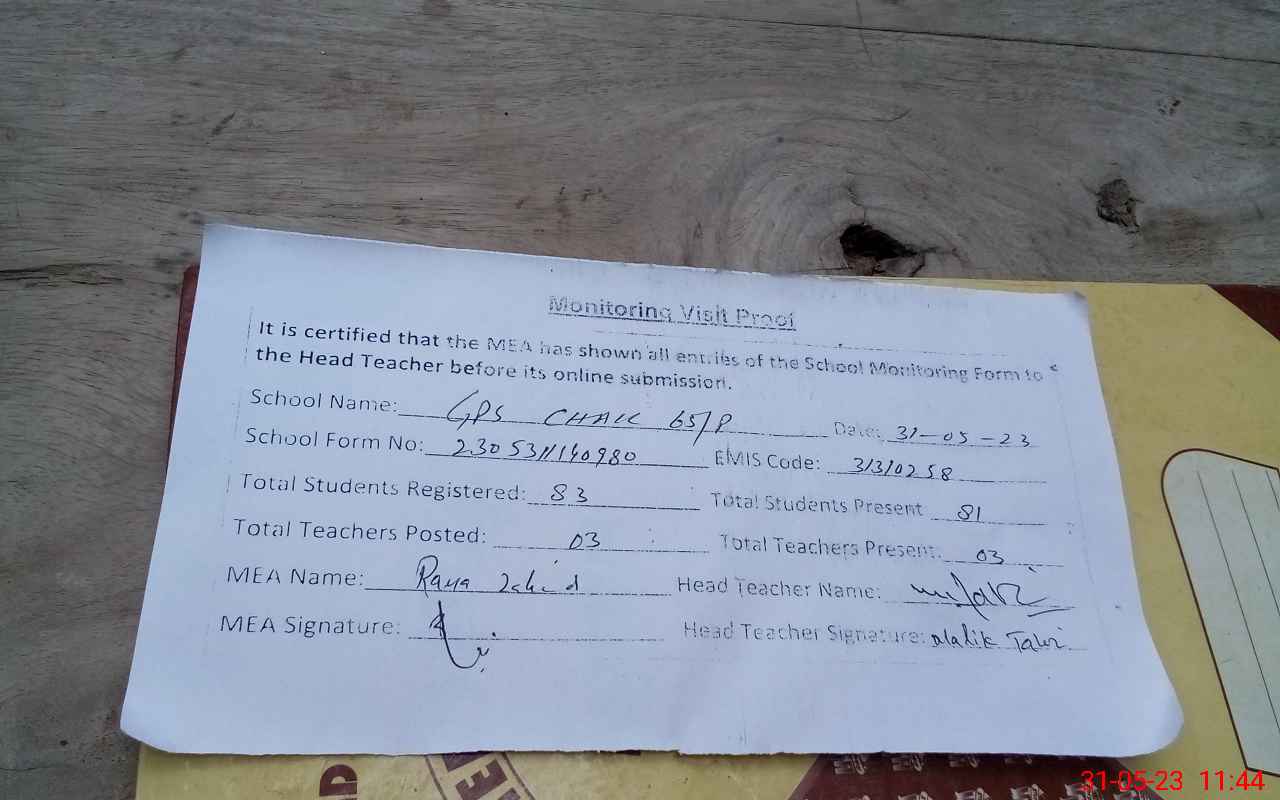 Monitoring Visit Proof
It is certified that the MEA has shown all entries of the School Monitoring Form to
the Head Teacher before its online submission.
School Name: GPS CHAK 65/P Date: 31-05-23
School Form No: 2305311140980 EMIS Code: 31310258
Total Students Registered: 83 Total Students Present 81
Total Teachers Posted: 03 Total Teachers Present: 03
MEA Name: Rana Zahid Head Teacher Name:
MEA Signature: Head Teacher Signature: Malik
31-05-23 11:44